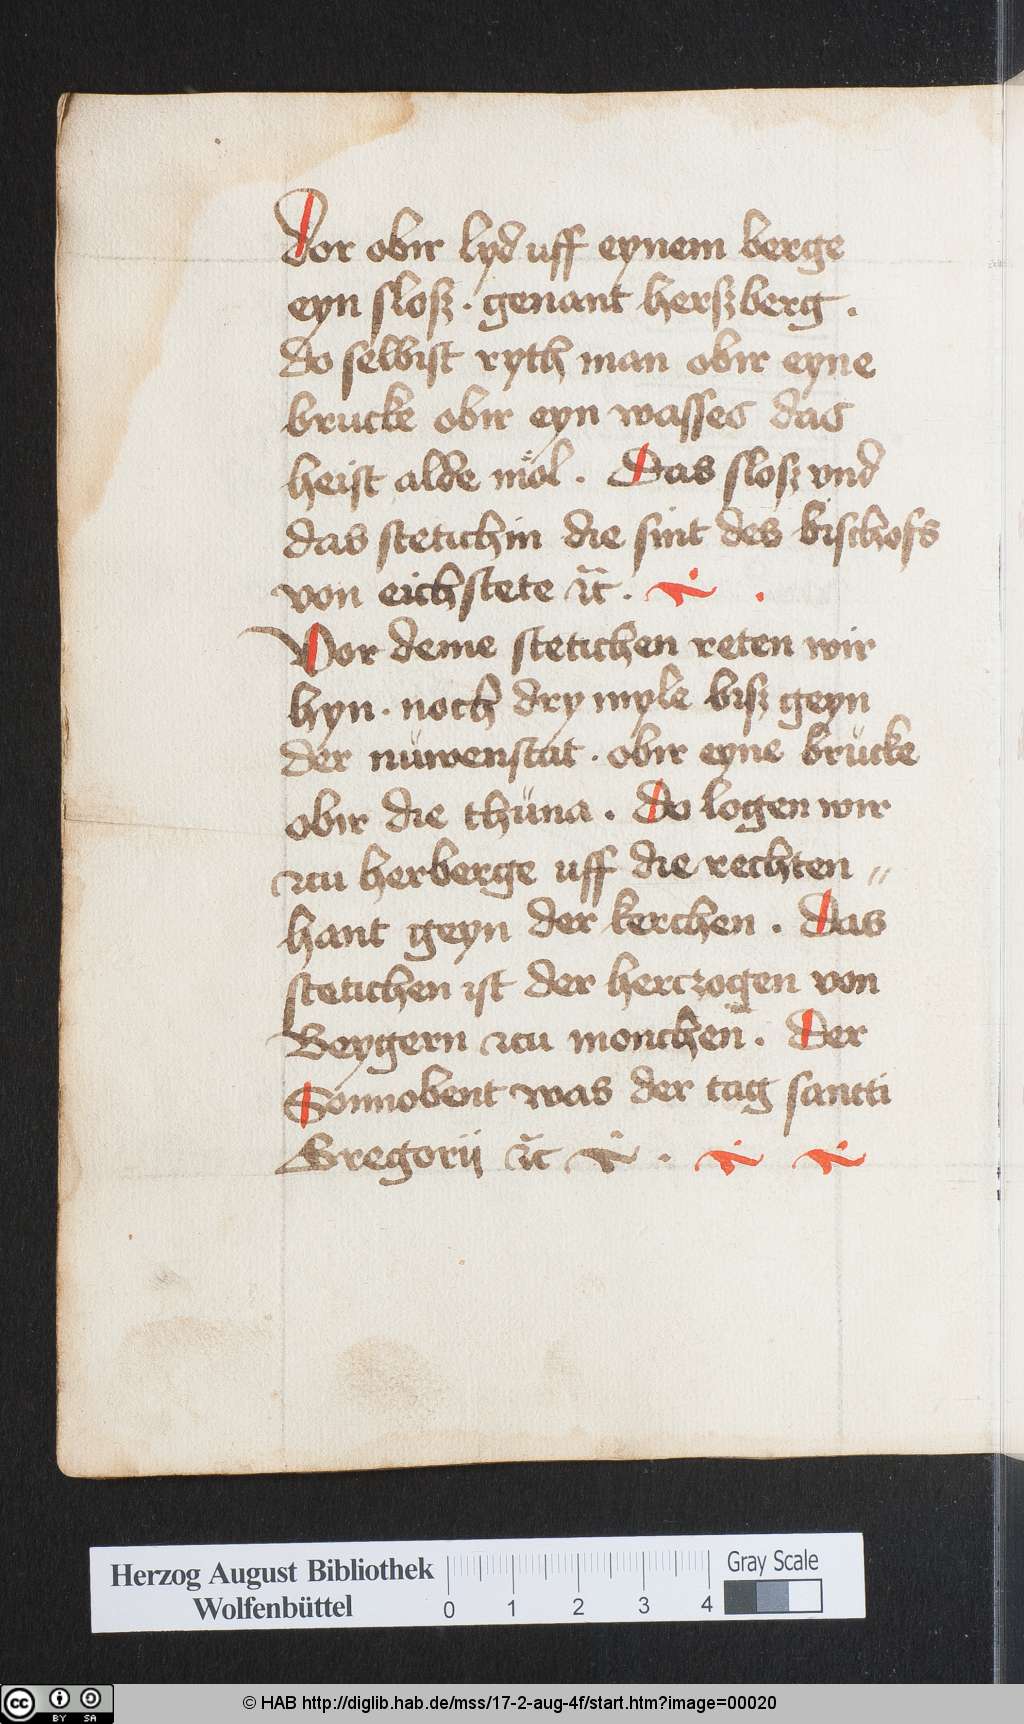 Dor obir lyd uff eynem berge
eyn slosz · genant herszberg .
do selbist ryth man obir eyne
brucke obir eyn wasses das
heist alde möl . Das slosz vnd
das stetichin die sint des bischofs
von eichstete ꝛc̃ .
Vor deme stetichen reten wir
hyn · noch dry myle bisz geyn
der nüwenstat · obir eyne brücke
obir die thüna . do logen wir
zcu herberge uff die rechten //
hant geyn der kerchen . Das
stetichen ist der herczogen von
Beygern zcu monchen . Der
Sonnobent was der tag sancti
Gregorij ꝛc̃ .
Herzog August Bibliothek
Wolfenbüttel
0 1 2 3 4
Gray Scale
cc BY SA
© HAB http://diglib.hab.de/mss/17-2-aug-4f/start.htm?image=00020